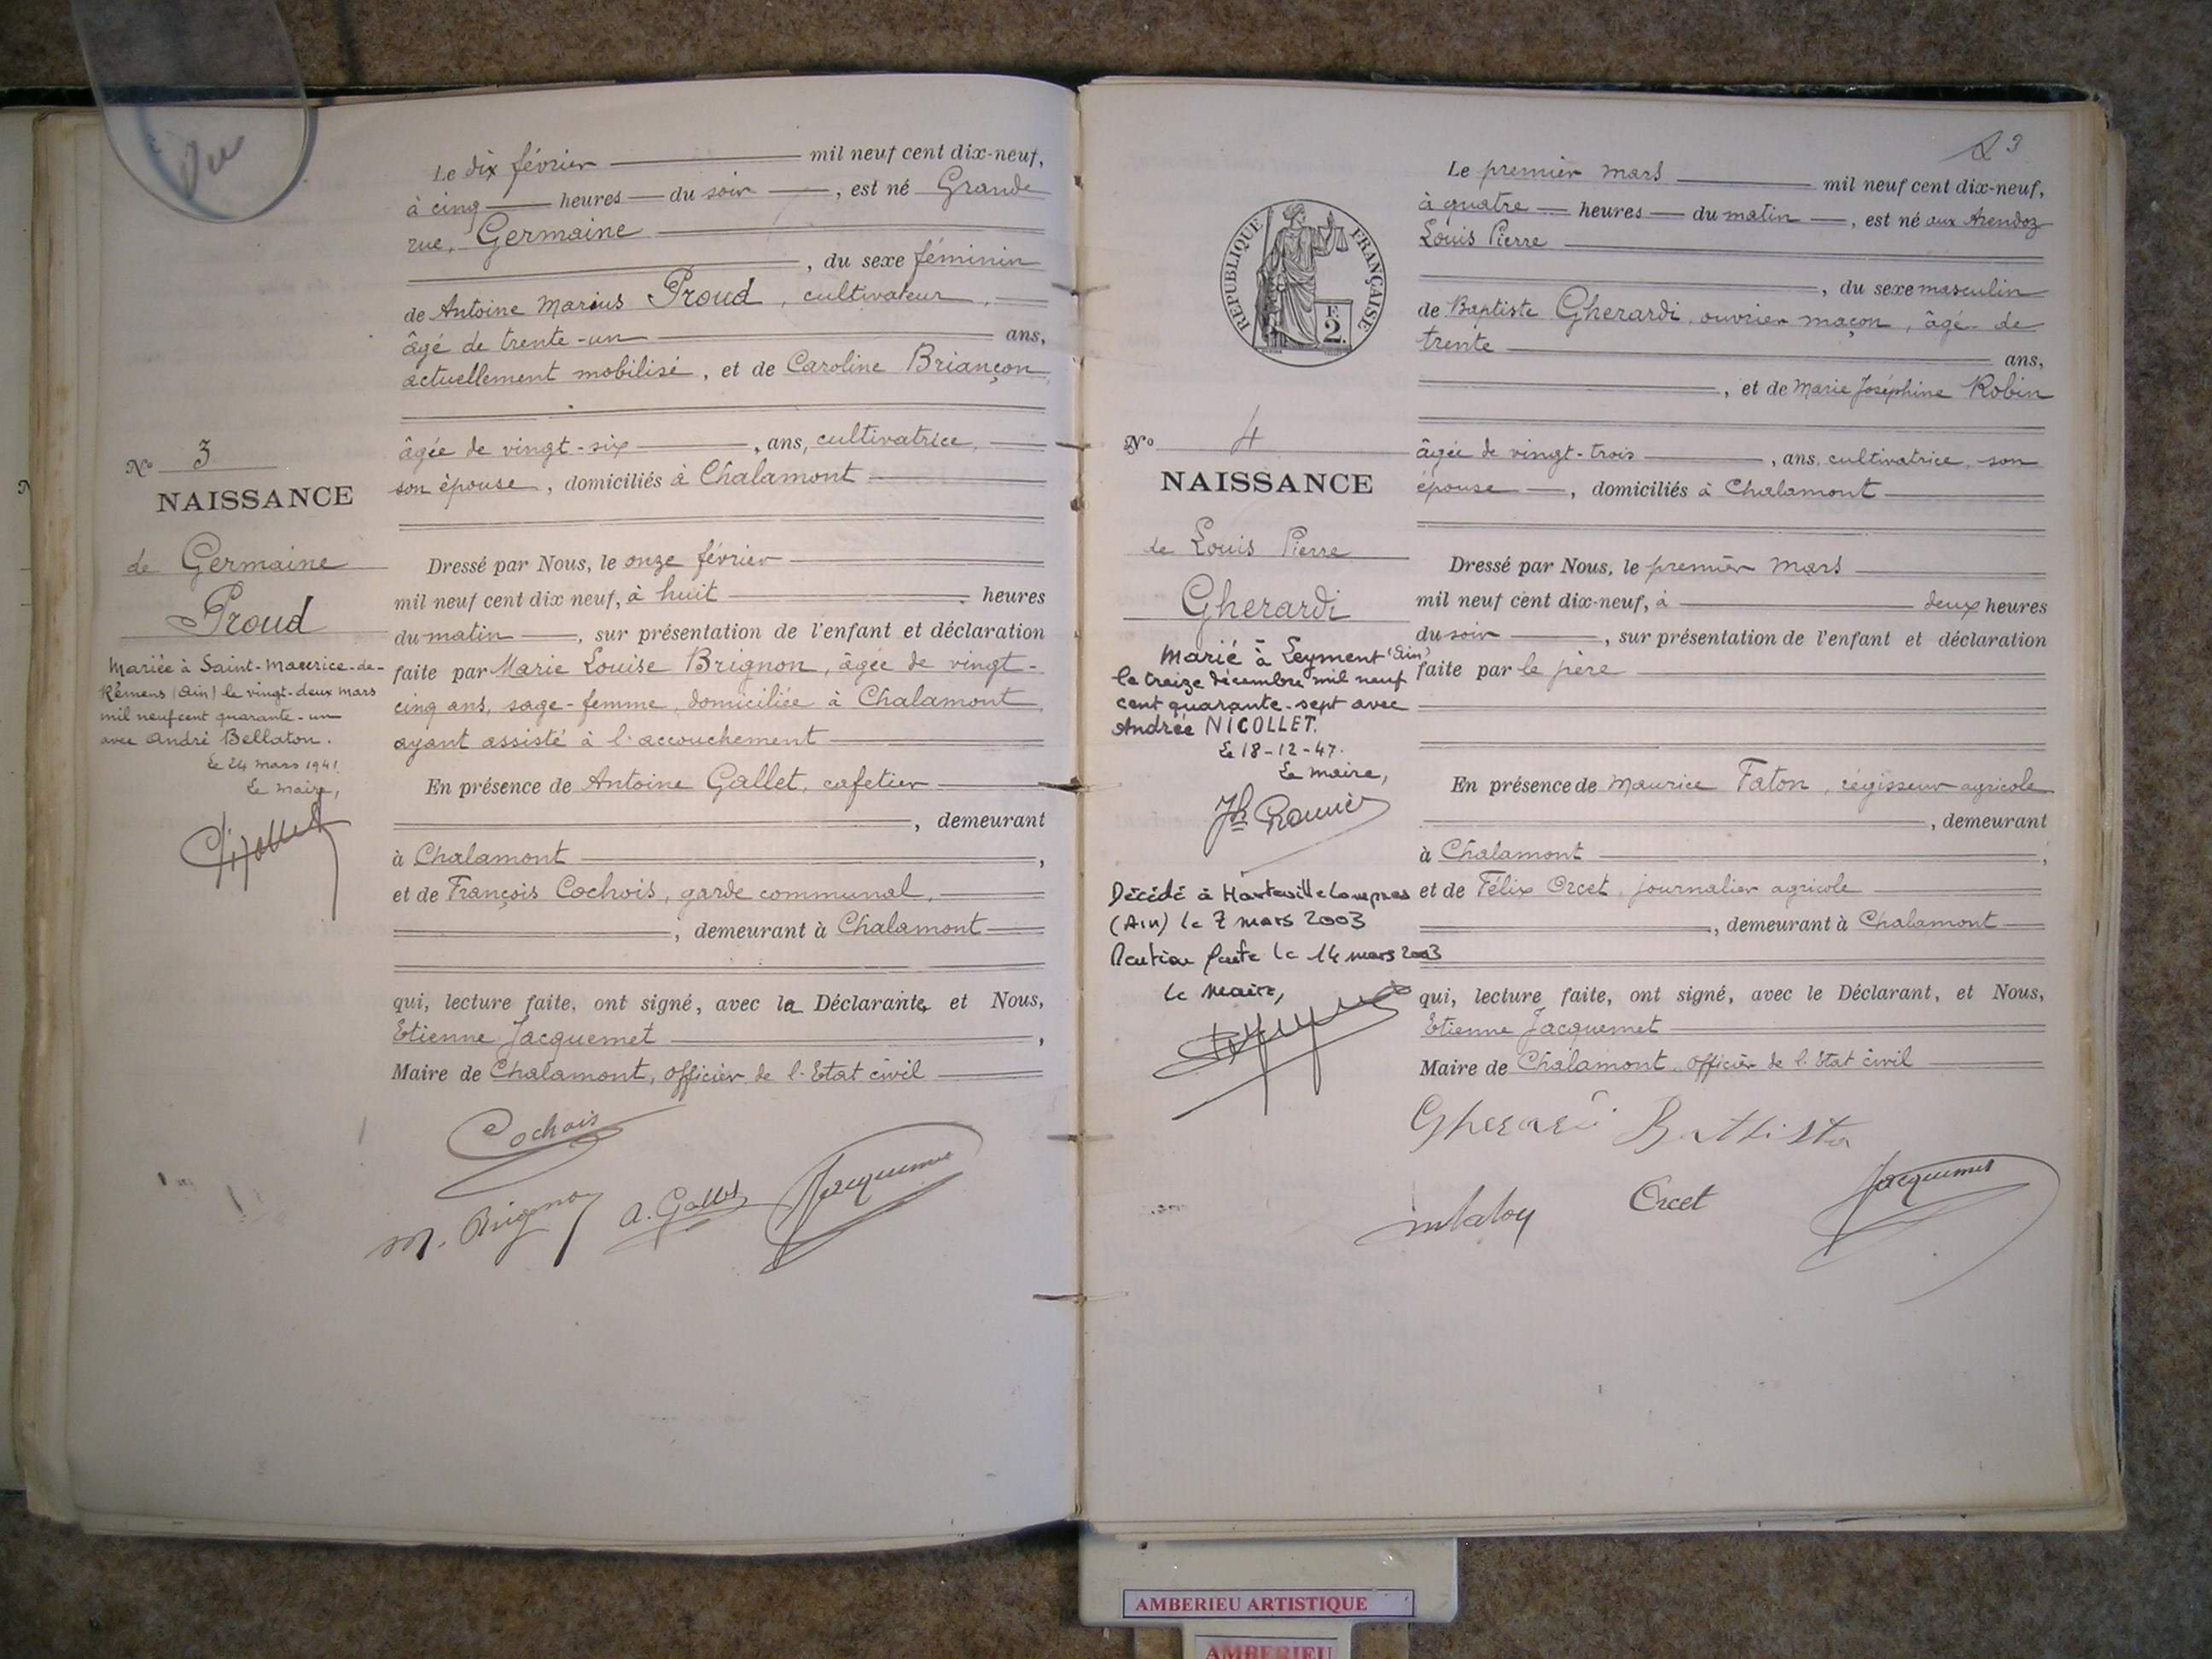 Le dix février mil neuf cent dix-neuf,
à cinq heures du soir, est né Grande
rue, Germaine
, du sexe féminin
de Antoine Marius Proud, cultivateur,
âgé de trente-un ans,
actuellement mobilisé, et de Caroline Briançon,
âgée de vingt-six, ans, cultivatrice,
son épouse, domiciliés à Chalamont
Dressé par Nous, le onze février
mil neuf cent dix neuf, à huit heures
du matin, sur présentation de l'enfant et déclaration
faite par Marie Louise Brignon, âgée de vingt-
cinq ans, sage-femme, domiciliée à Chalamont,
ayant assisté à l'accouchement
En présence de Antoine Gallet, cafetier
, demeurant
à Chalamont,
et de François Cochois, garde communal,
, demeurant à Chalamont
qui, lecture faite, ont signé, avec la Déclarante, et Nous,
Etienne Jacquemet,
Maire de Chalamont, officier de l'Etat civil
Cochois
M. Brignon A. Gallet Jacquemet
N° 3
NAISSANCE
de Germaine
Proud
Mariée à Saint-Maurice-de-
Rémens (Ain) le vingt-deux mars
mil neuf cent quarante-un
avec André Bellaton.
Le 24 mars 1941.
Le maire,
23
Le premier mars mil neuf cent dix-neuf,
à quatre heures du matin, est né aux
Louis Pierre
, du sexe masculin
de Baptiste Gherardi, ouvrier maçon, âgé de
trente ans,
, et de Marie Joséphine Robin
âgée de vingt-trois, ans, cultivatrice, son
épouse, domiciliés à Chalamont
Dressé par Nous, le premier mars
mil neuf cent dix-neuf, à deux heures
du soir, sur présentation de l'enfant et déclaration
faite par le père
En présence de Maurice Faton, régisseur agricole
, demeurant
à Chalamont,
et de Félix Orcet, journalier agricole
, demeurant à Chalamont
qui, lecture faite, ont signé, avec le Déclarant, et Nous,
Etienne Jacquemet
Maire de Chalamont, officier de l'Etat civil
Gherardi Battista
Orcet Jacquemet
RÉPUBLIQUE FRANÇAISE
F.
2.
N° 4
NAISSANCE
de Louis Pierre
Gherardi
Marié à Leyment (Ain)
le treize décembre mil neuf
cent quarante-sept avec
Andrée NICOLLET.
Le 18-12-47.
Le maire,
Décédé à Hauteville Lompnes
(Ain) le 7 mars 2003
Mention faite le 14 mars 2003
Le Maire,
AMBERIEU ARTISTIQUE
AMBERIEU